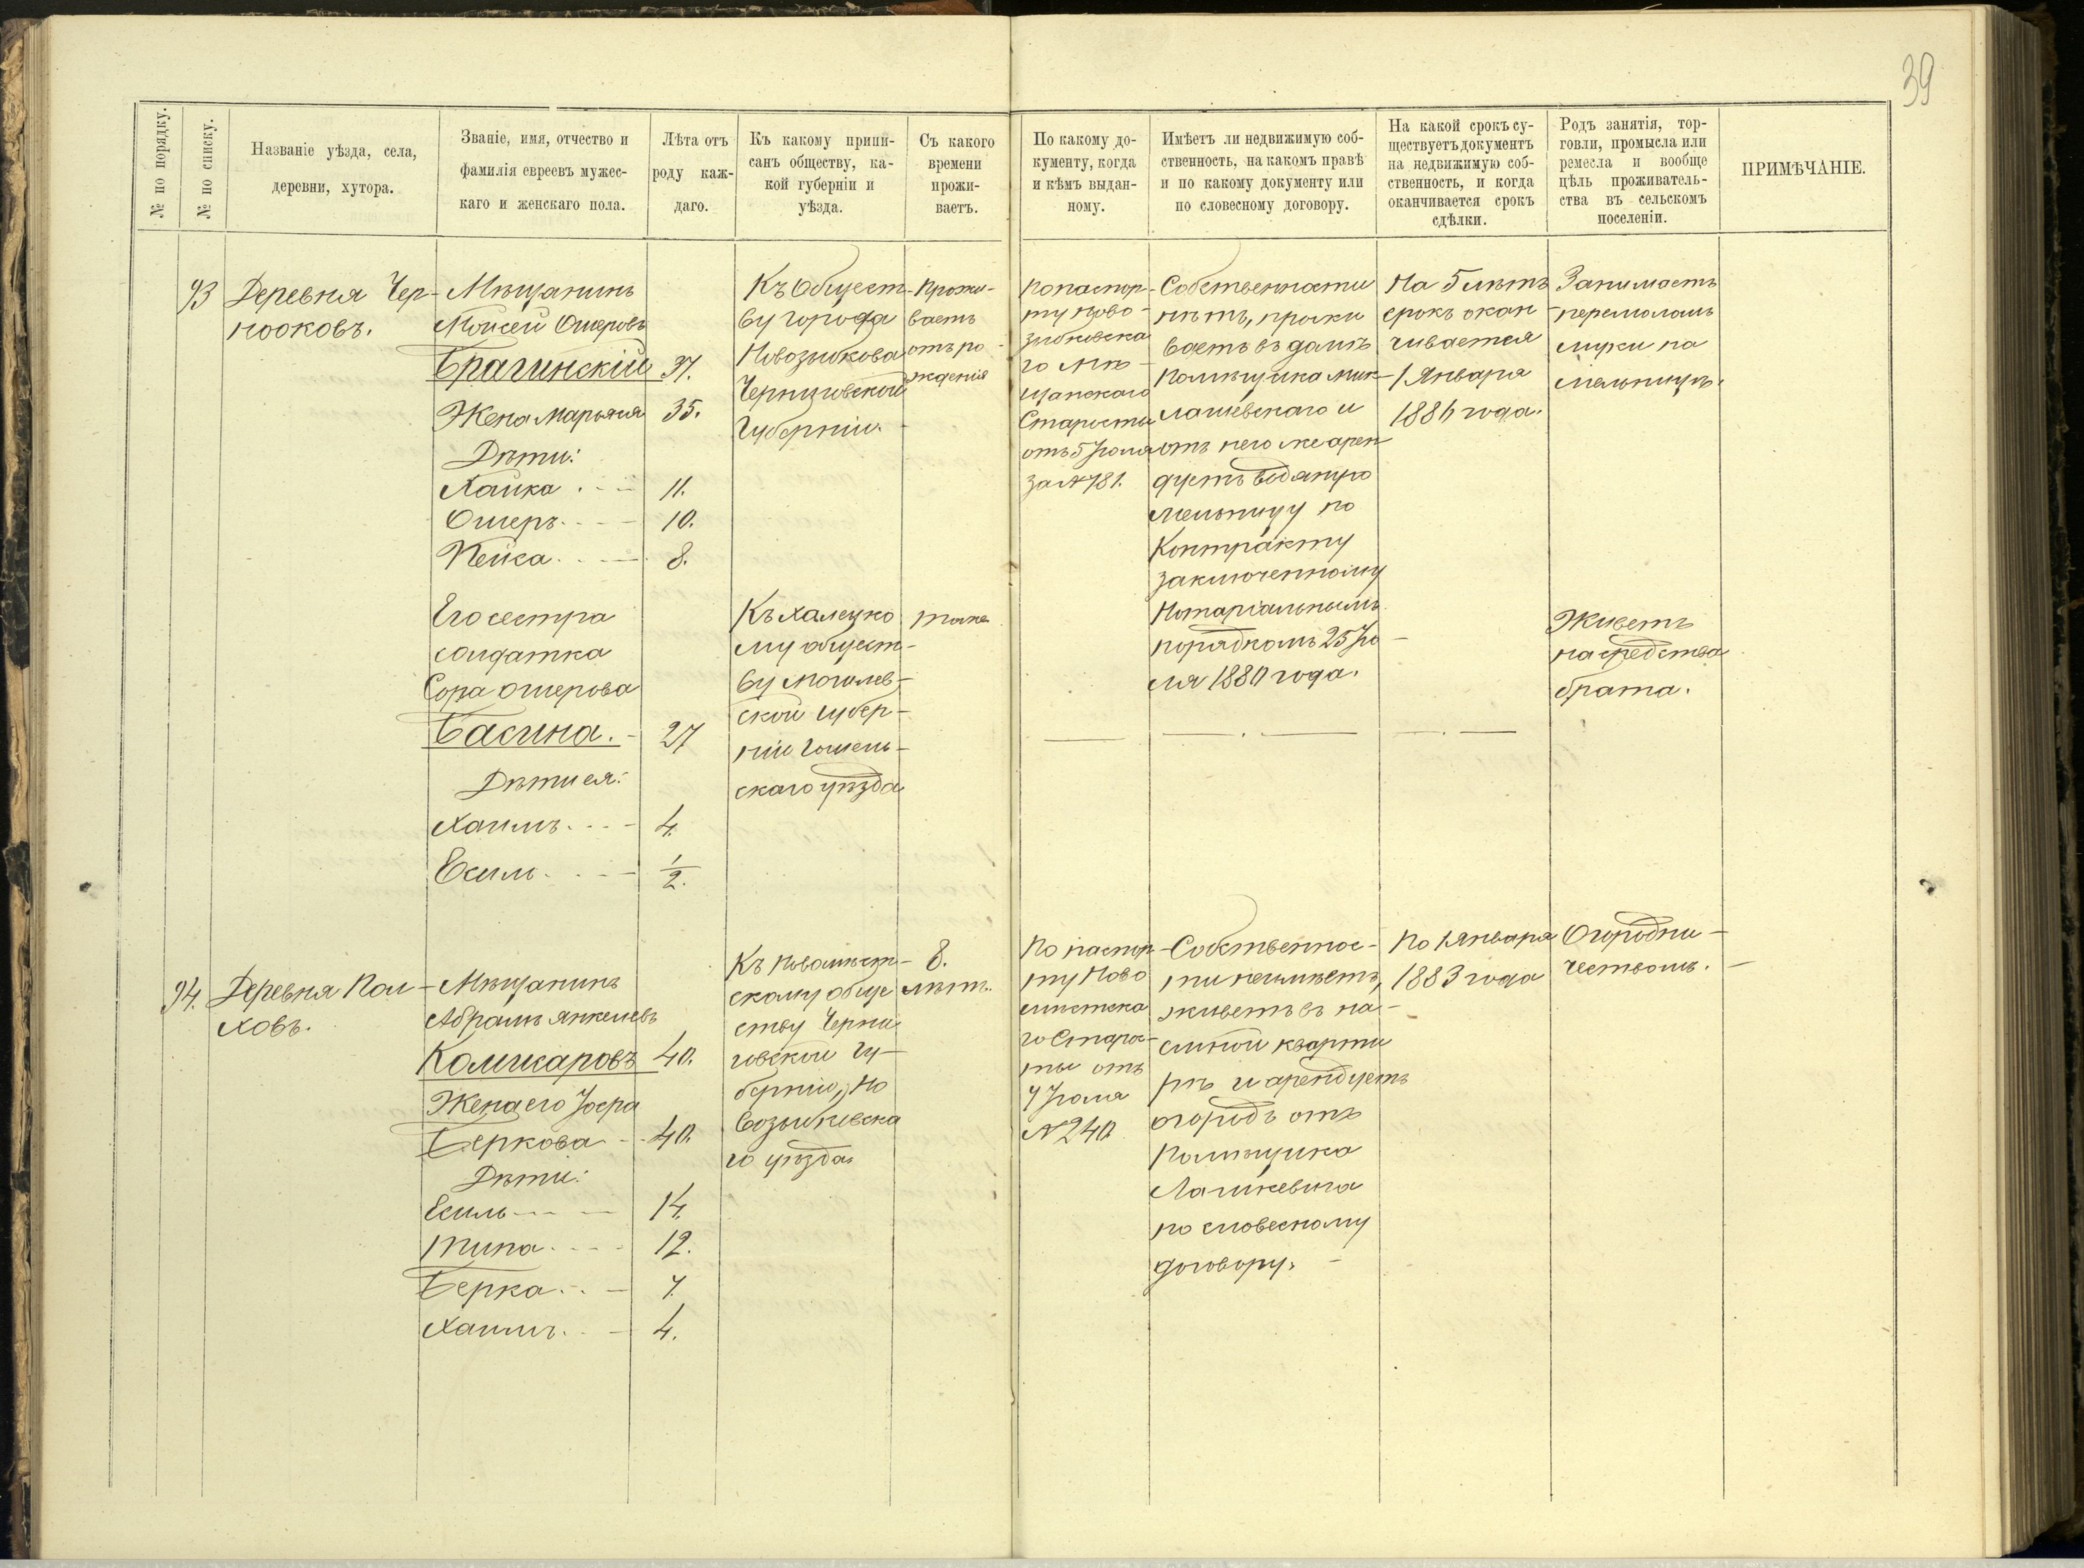 39
№ по порядку.
№ по списку.
Названіе уѣзда, села,
деревни, хутора.
Званіе, имя, отчество и
фамилія евреевъ мужес-
каго и женскаго пола.
Лѣта отъ
роду каж-
даго.
Къ какому припи-
санъ обществу, ка-
кой губерніи и
уѣзда.
Съ какого
времени
прожи-
ваетъ.
По какому до-
кументу, когда
и кѣмъ выдан-
ному.
Имѣетъ ли недвижимую соб-
ственность, на какомъ правѣ
и по какому документу или
по словесному договору.
На какой срокъ су-
ществуетъ документъ
на недвижимую соб-
ственность, и когда
оканчивается срокъ
сдѣлки.
Родъ занятія, тор-
говли, промысла или
ремесла и вообще
цѣль проживатель-
ства въ сельскомъ
поселеніи.
ПРИМѢЧАНІЕ.
93
Деревня Чер-
нооковъ.
Мѣщанинъ
Мойсей Ошеровъ
Брагинскій 37.
Жена Марьяся 35.
Дѣти:
Хайка 11.
Ошеръ 10.
Пейса 8.
Къ Общест-
ву города
Новозыбкова
Черниговской
Губерніи.
Прожи-
ваетъ
отъ ро-
жденія
По паспор-
ту Ново-
зыбковска
го Мѣ-
щанскаго
Старосты
отъ 5 Іюля
за № 781.
Собственности
нѣтъ, прожи
ваетъ въ домѣ
Помѣщика Мик-
лашевскаго и
отъ него же арен
дуетъ водяную
мельницу по
Контракту
заключенному
Нотаріальнымъ
порядкомъ 25 Ію-
ля 1880 года.
На 5 лѣтъ
срокъ окан-
чивается
1 Января
1886 года.
Занимается
перемоломъ
муки на
мельницѣ.
Его сестра
солдатка
Сора Ошерова
Басина. 27
Дѣти ея:
Хаимъ 4.
Есиль 1/2.
Къ Халецко
му общест-
ву Могилев-
ской губер-
ніи Гомель-
скаго уѣзда
тоже
Живетъ
на средства
брата.
94.
Деревня Пол-
ховъ.
Мѣщанинъ
Абрамъ Янкелевъ
Комисаровъ 40.
Жена его
Беркова 40.
Дѣти:
Есиль 14.
12.
Берка 7.
Хаимъ 4.
Къ Новомѣст-
скому обще
ству Черни
говской Гу-
берніи, Но
возыбковска
го уѣзда
8.
лѣтъ.
По паспор-
ту Ново
мѣстска
го Старос-
ты отъ
7 Іюля
№ 240.
Собственнос-
ти неимѣетъ,
живетъ въ на-
емной кварти
рѣ и арендуетъ
огородъ отъ
Помѣщика
Лашкевича
по словесному
договору.
По 1 Января
1883 года
Огородни-
чествомъ.